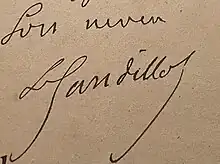 Son neveu
L Gandillot